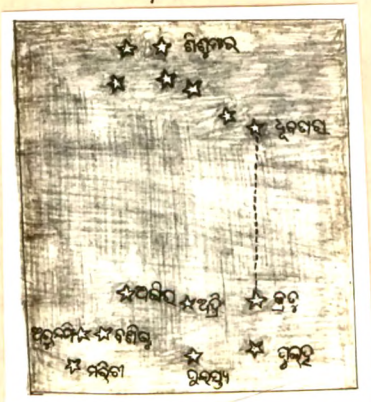 ଶିଶୁମାର
ଧ୍ରୁବତାରା
ଅଙ୍ଗିରା
ଅତ୍ରି
କ୍ରତୁ
ଅରୁନ୍ଧତୀ
ବଶିଷ୍ଠ
ମରିଚୀ
ପୁଲସ୍ତ୍ୟ
ପୁଲହ